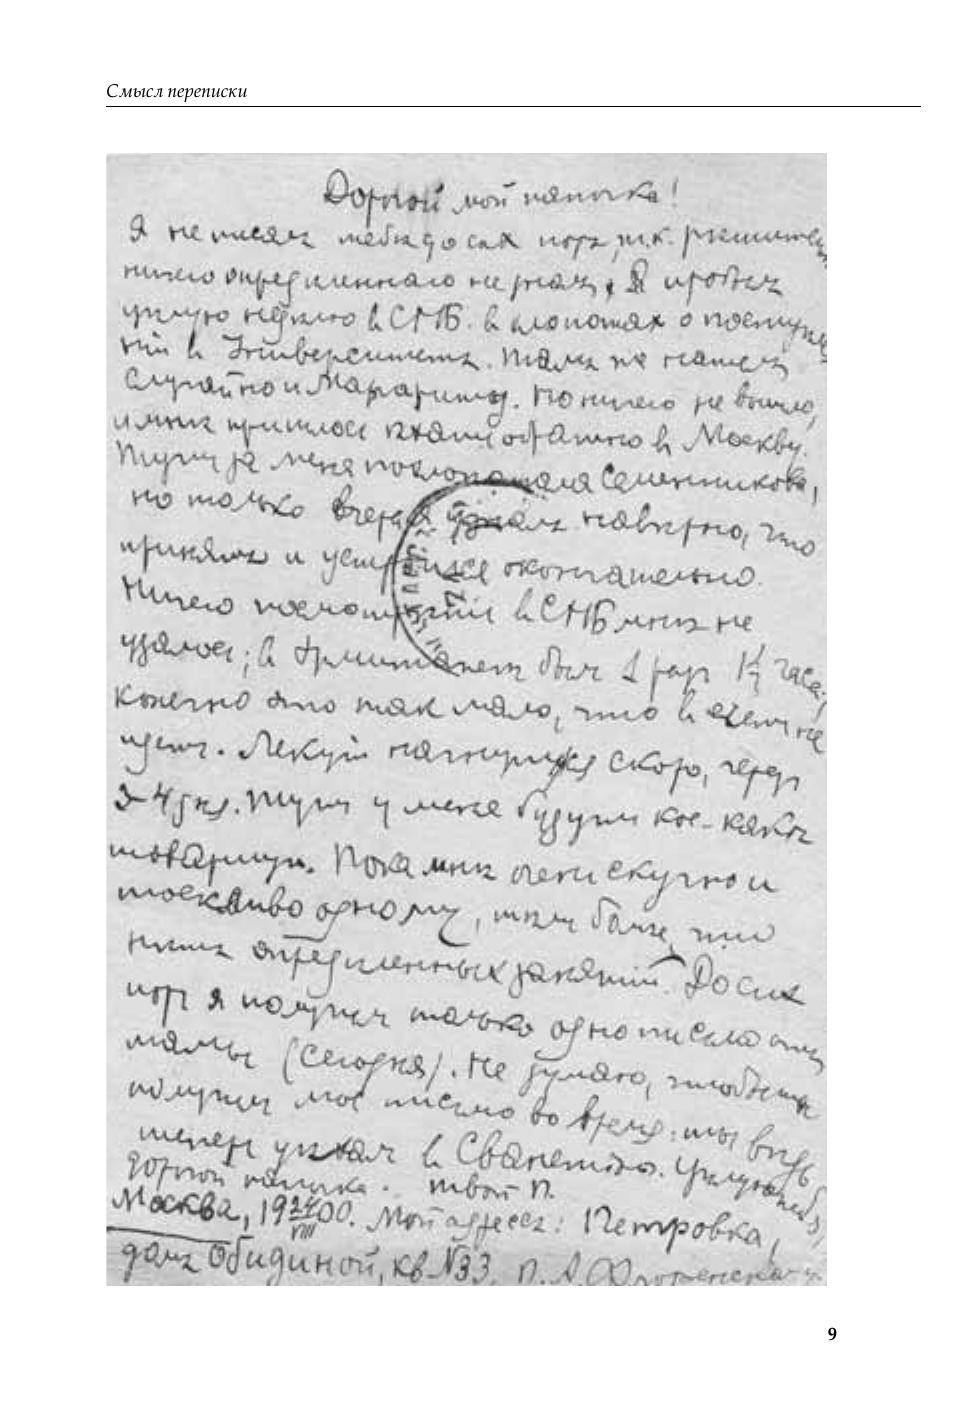 Смысл переписки
Дорогой мой папочка!
Я не писалъ тебѣ до сих поръ, т.к. рѣшительно
ничего опредѣленнаго не зналъ. Я пробылъ
цѣлую недѣлю в СПБ. в хлопотах о поступле
ніи в Университетъ. Тамъ же нашелъ
случайно и Маргариту. Но ничего не вышло,
и мнѣ пришлось ѣхать обратно в Москву.
Тутъ за меня похлопотала Семенникова,
но только вчера я узналъ навѣрно, что
принятъ и устроился окончательно.
Ничего посмотрѣть в СПБ мнѣ не
удалось; в Эрмитажѣ былъ 1 разъ часа,
конечно это так мало, что в счетъ не
идетъ. Лекціи начнутся скоро, через
3-4 дня. Тутъ у меня будутъ кое-какіе
товарищи. Пока мнѣ очень скучно и
тоскливо одному, тѣмъ болѣе, что
нѣтъ опредѣленныхъ занятій. До сих
поръ я получилъ только одно письмо отъ
мамы (сегодня). Не думаю, чтобы ты
получилъ мое письмо во время: ты вѣдь
теперь уѣхалъ в Сванетію. Цѣлую тебя,
дорогой папочка. твой П.
Москва, 19 24/VIII 00. Мой адресъ: Петровка,
домъ Обидиной, кв. №33. П. А. Флоренскому
9